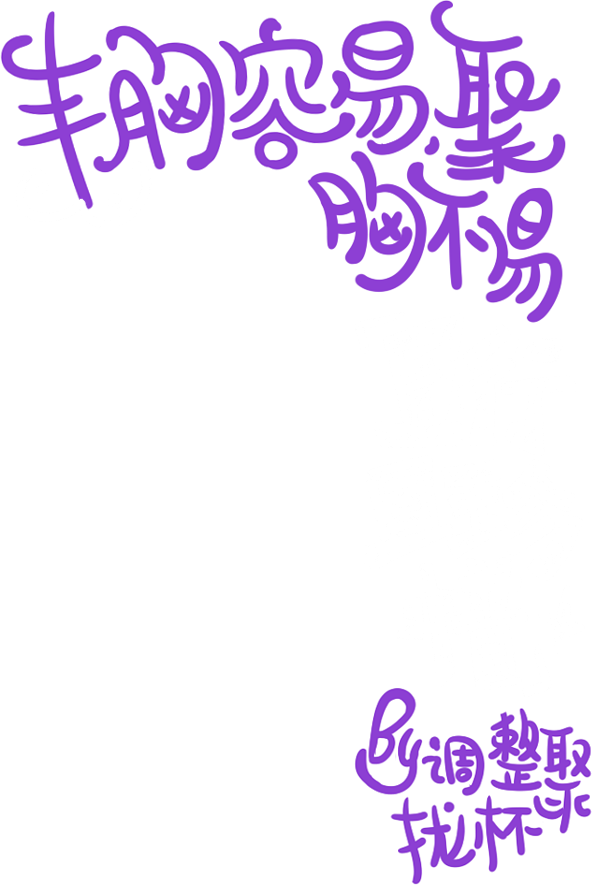 丰胸容易聚
胸不易
By调整聚
拢杯